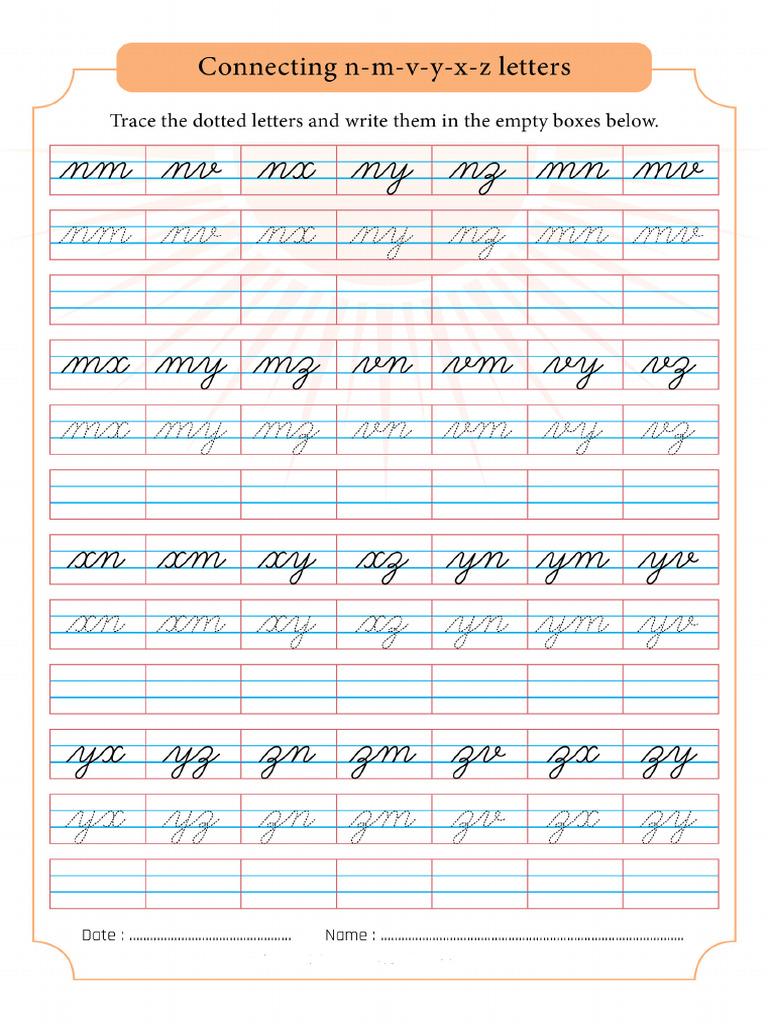 Connecting n-m-v-y-x-z letters
Trace the dotted letters and write them in the empty boxes below.
nm nv nx ny nz mn mv
nm nv nx ny nz mn mv
mx my mz vn vm vy vz
mx my mz vn vm vy vz
xn xm xy xz yn ym yv
xn xm xy xz yn ym yv
yx yz zn zm zv zx zy
yx yz zn zm zv zx zy
Date : ................................................ Name : ................................................................................